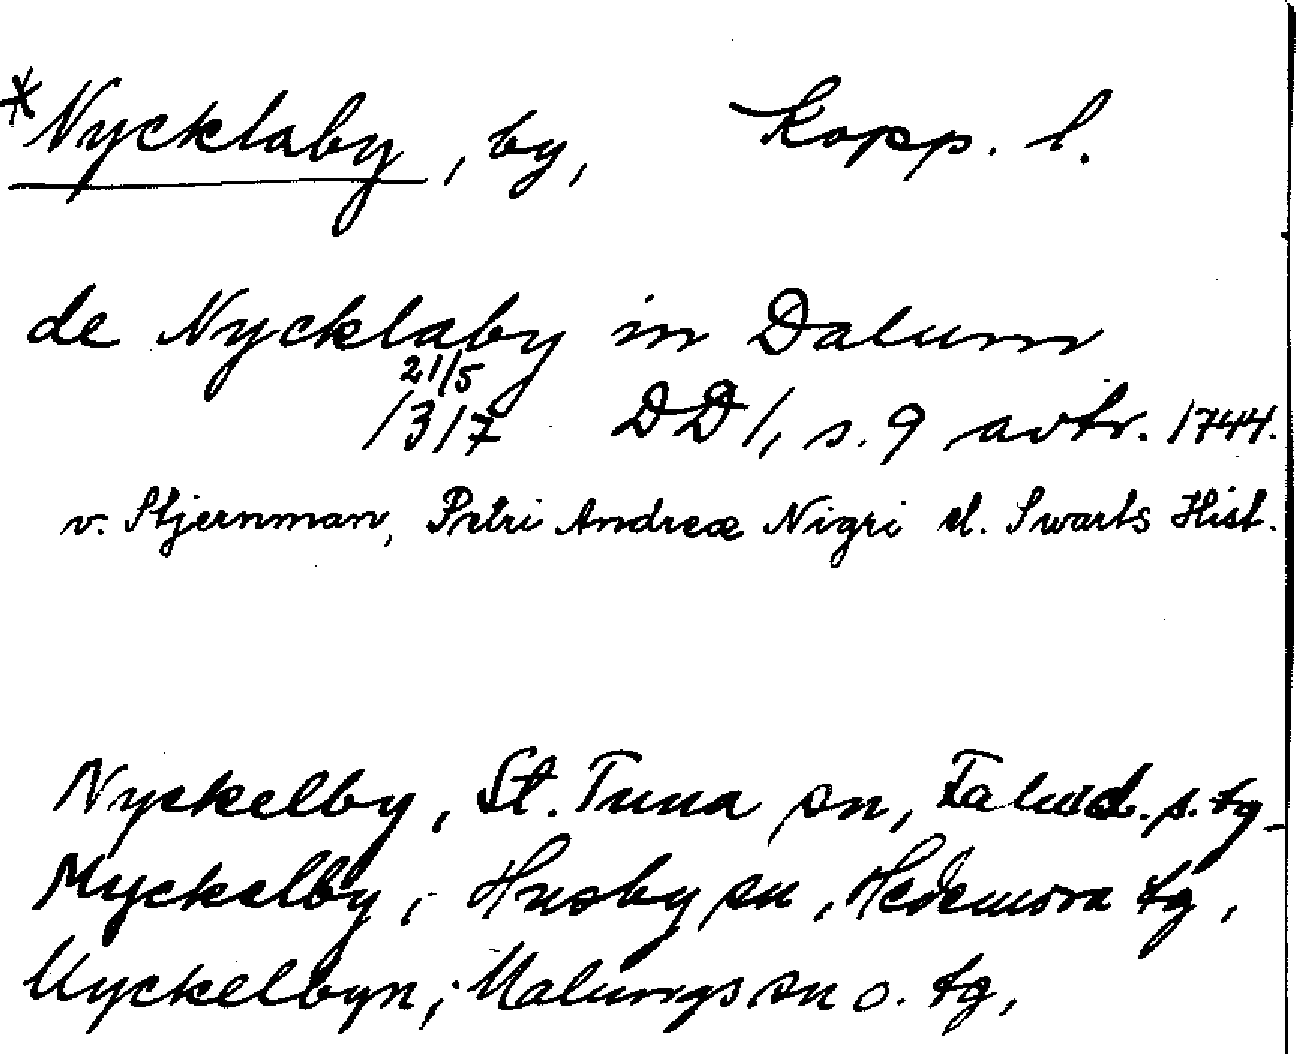 * Nycklaby, by, Kopp. l.
de Nycklaby in Dalum
21/5
1317 DD 1, s. 9 avtr. 1744.
v. Stjernman, Petri Andreæ Nigri el. Swarts Hist.
Nyckelby, St. Tuna sn, Falu d. s. tg
Myckelby, Husby sn, Hedemora tg,
Myckelbyn, Malungs sn o. tg,